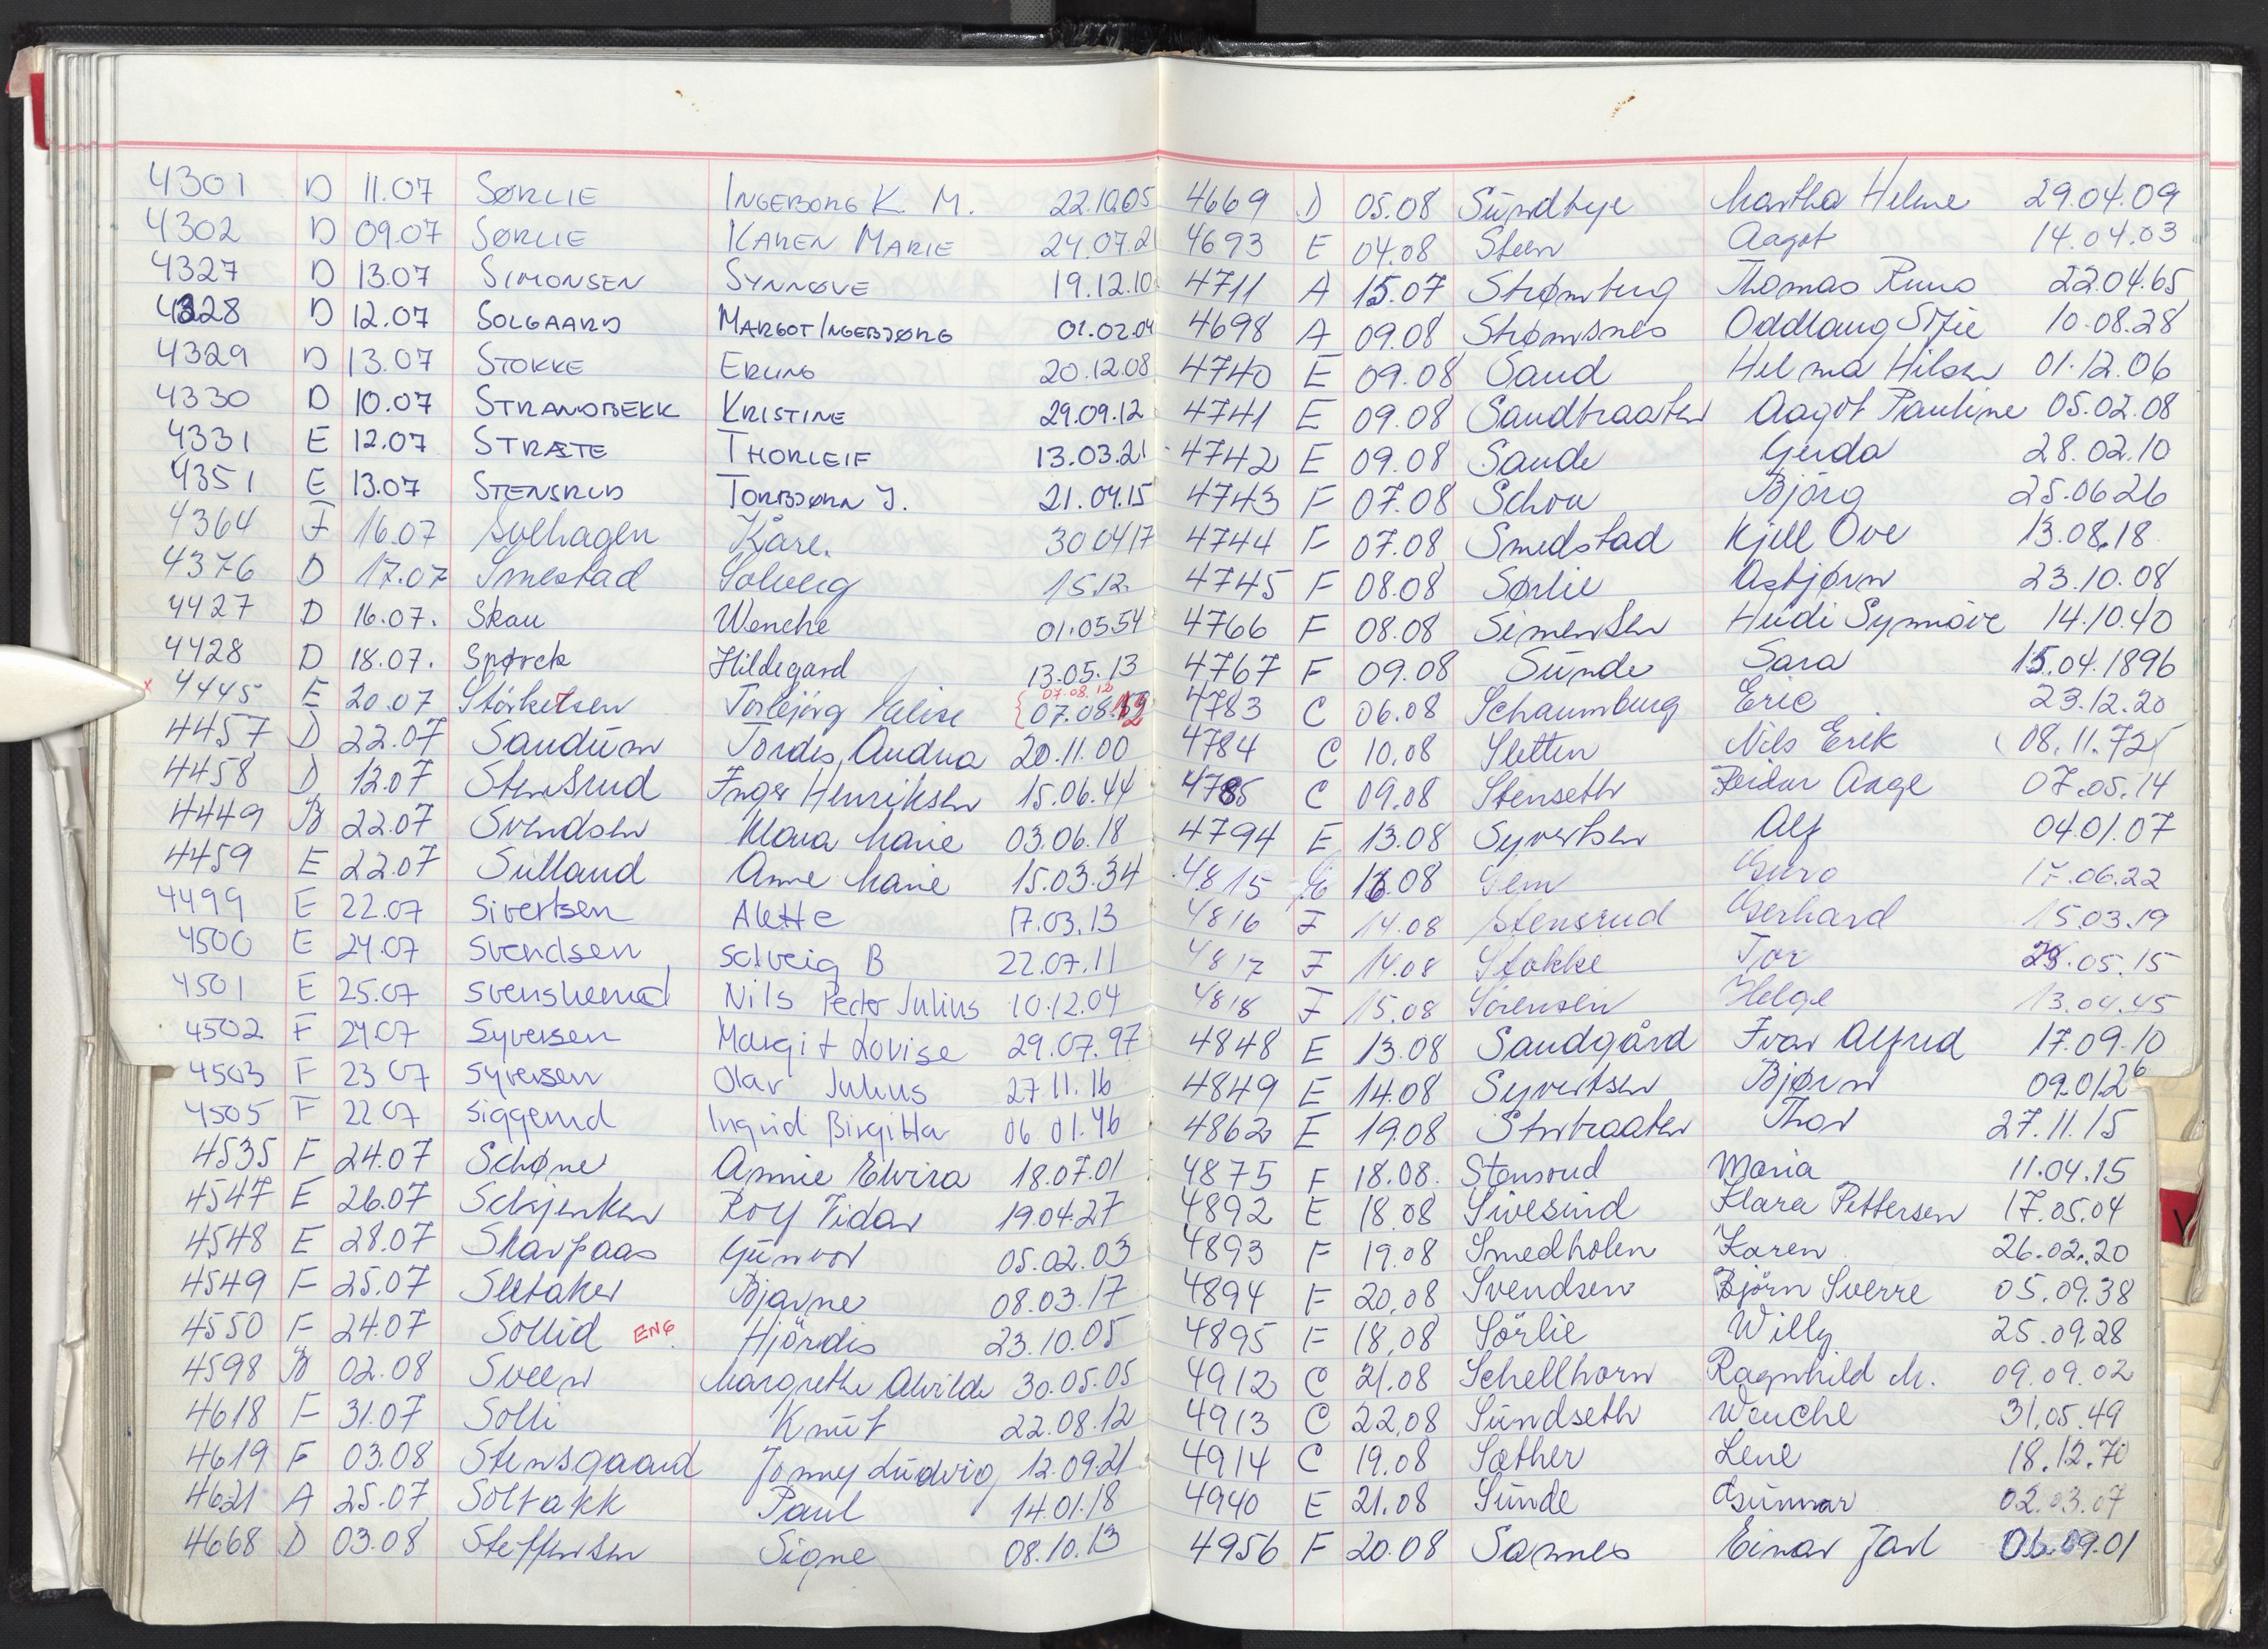 4301 D 11.07 SØRLIE INGEBORG K. M. 22.10.05
4302 D 09.07 SØRLIE KAREN MARIE 24.07.2
4327 D 13.07 SIMONSEN SYNNØVE 19.12.10
4328 D 12.07 SOLGAARD MARGOT INGEBJØRG 01.02.04
4329 D 13.07 STOKKE ERLING 20.12.08
4330 D 10.07 STRANDBEKK KRISTINE 29.09.12
4331 E 12.07 STRÆTE THORLEIF 13.03.21
4351 E 13.07 STENSRUD TORBJØRN J. 21.04.15
4364 F 16.07 Solhagen Kåre. 30 04 17
4376 D 17.07 Smestad Solveig 15.12.
4427 D 16.07. Skau Wenche 01.05.54
4428 D 18.07. Spørck Hildegard 13.05.13
x 4445 E 20.07 Störkersen Torbjörg Elise 07.08.12 07.08.
4457 D 22.07 Sandum Tordis, Andrea 20.11.00
4458 D 12.07 Stensrud Inger Henriksen 15.06.44
4449 B 22.07 Svendsen Klara Marie 03.06.18
4459 E 22.07 Sulland Anne Marie 15.03.34
4499 E 22.07 Sivertsen Alette 17.03.13
4500 E 24.07 Svendsen Solveig B 22.07.11
4501 E 25.07 Nils Peder Julius 10.12.04
4502 F 24.07 Syversen Margit Lovise 29.07.97
4503 F 23 07 Syversen Olav Julius 27 11.16
4505 F 22.07 Siggerud Ingrid Birgitta 06 01.46
4535 F 24.07 Schøne Annie Elvira 18.07.01
4547 E 26.07 Schjenken Rolf Vidar 19.04.27
4548 E 28.07 Skarpaas Gunvor 05.02.03
4549 F 25.07 Sletaker Bjarne 08.03.17
4550 F 24.07 Sollid ENG. Hjördis 23.10.05
4598 B 02.08 Sveen Margrethe Alvilde 30.05.05
4618 F 31.07 Solli Knut 22.08.12
4619 F 03.08 Stensgaard Jonny Ludvig 12.09.21
4621 A 25.07 Soltakk Paul 14.01.18
4668 D 03.08 Steffensen Signe 08.10.13
4669 D 05.08 Sundbye Martha Helene 29.04.09
4693 E 04.08 Steen Aagot 14.04.03
4711 A 15.07 Strømberg Thomas 22.04.65
4698 A 09.08 Strømsnes Oddlaug 10.08.28
4740 E 09.08 Sand Helma 01.12.06
4741 E 09.08 Sandbraaten Aagot Pauline 05.02.08
4742 E 09.08 Sande Gerda 28.02.10
4743 F 07.08 Schou Bjørg 25.06 26
4744 F 07.08 Smedstad Kjell Ove 13.08.18
4745 F 08.08 Sørlie Asbjørn 23.10.08
4766 F 08.08 Simensen Heidi Synnöve 14.10.40
4767 F 09.08 Sunde Sara 15.04.1896
4783 C 06.08 Schaumburg Eric 23.12.20
4784 C 10.08 Sletten Nils Erik 08.11.72
4785 C 09.08 Stenseth Reidar Aage 07.05.14
4794 E 13.08 Syvertsen Alf 04.01.07
4815 16.08 Sem Guro 17.06.22
4816 F 14.08 Stensrud Gerhard 15.03.19
4817 F 14.08 Stokke Tor .05.15
4818 F 15.08 Sörensen Helge 13.04.45
4848 E 13.08 Sandgård Ivar Alfred 17.09.10
4849 E 14.08 Syvertsen Bjørn 09.01.26
4862 E 19.08 Thor 27.11.15
4875 F 18.08. Stensrud Maria 11.04.15
4892 E 18.08 Sivesind Klara Pettersen 17.05.04
4893 F 19.08 Smedholen Karen 26.02.20
4894 F 20.08 Svendsen Björn Sverre 05.09.38
4895 F 18.08 Sörlie Willy 25.09.28
4912 C 21.08 Schellhorn Ragnhild M. 09.09.02
4913 C 22.08 Sundseth Wenche 31.05.49
4914 C 19.08 Sæther Lene 18.12.70
4940 E 21.08 Sunde Gunnar 02.03.07
4956 F 20.08 Sannes Einar Jarl 06.09.01
V